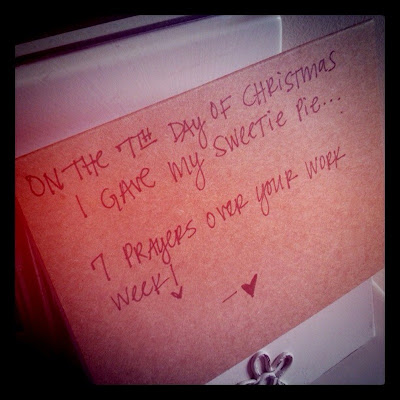 ON THE 7TH DAY OF CHRISTMAS
I GAVE MY SWEETIE PIE...
7 PRAYERS OVER YOUR WORK
WEEK! ♥
— ♥